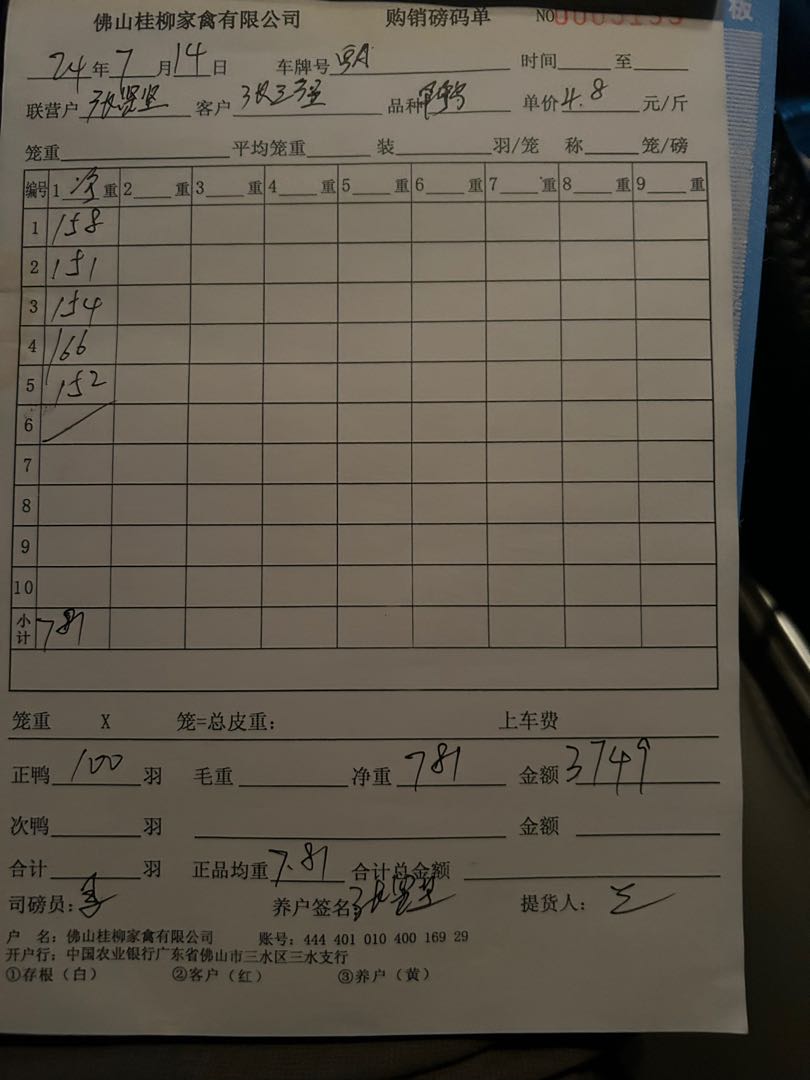 佛山桂柳家禽有限公司 购销磅码单 NO
24年7月14日 车牌号 时间 至
联营户 客户 品种 单价4.8元/斤
笼重 平均笼重 装 羽/笼 称 笼/磅
编号 1净重 2 重 3 重 4 重 5 重 6 重 7 重 8 重 9 重
1 158
2 151
3 154
4 166
5 152
6
7
8
9
10
小计 781
笼重 X 笼=总皮重: 上车费
正鸭100羽 毛重 净重781 金额3749
次鸭 羽 金额
合计 羽 正品均重7.81 合计总金额
司磅员: 养户签名 提货人:
户 名: 佛山桂柳家禽有限公司 账号: 444 401 010 400 169 29
开户行: 中国农业银行广东省佛山市三水区三水支行
①存根(白) ②客户(红) ③养户(黄)
板